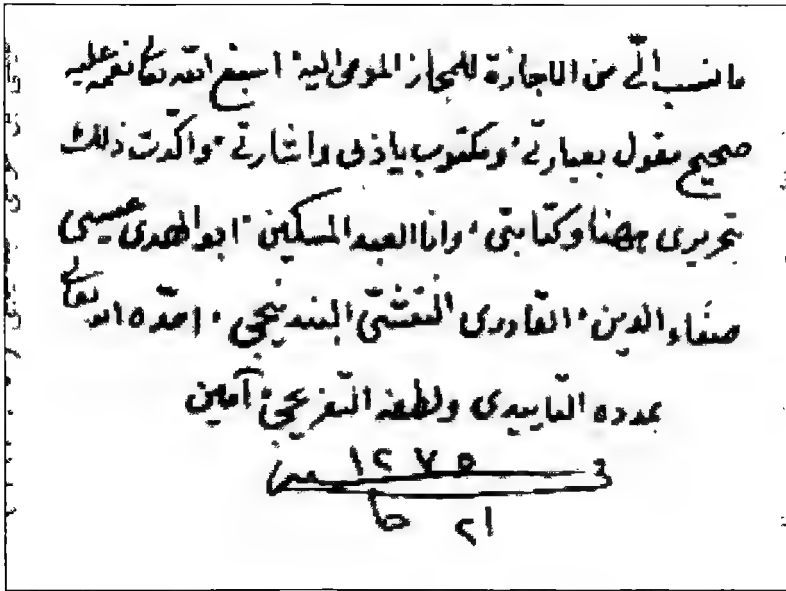 ما نسب الّي من الاجازة للمجاز المومى اليه اسبغ الله تعالى نعمه عليه
صحيح مقول بعبارتي ومكتوب باذني واشارتي واكّدت ذلك
بتحريري ههنا وكتابتي وانا العبد المسكين ابو الهدى عيسى
صفاء الدين القادري النقشي البندنيجي امدّه الله تعالى
بمدده التاييدي ولطفه التفريجي آمين
١٢٧٥
٢١